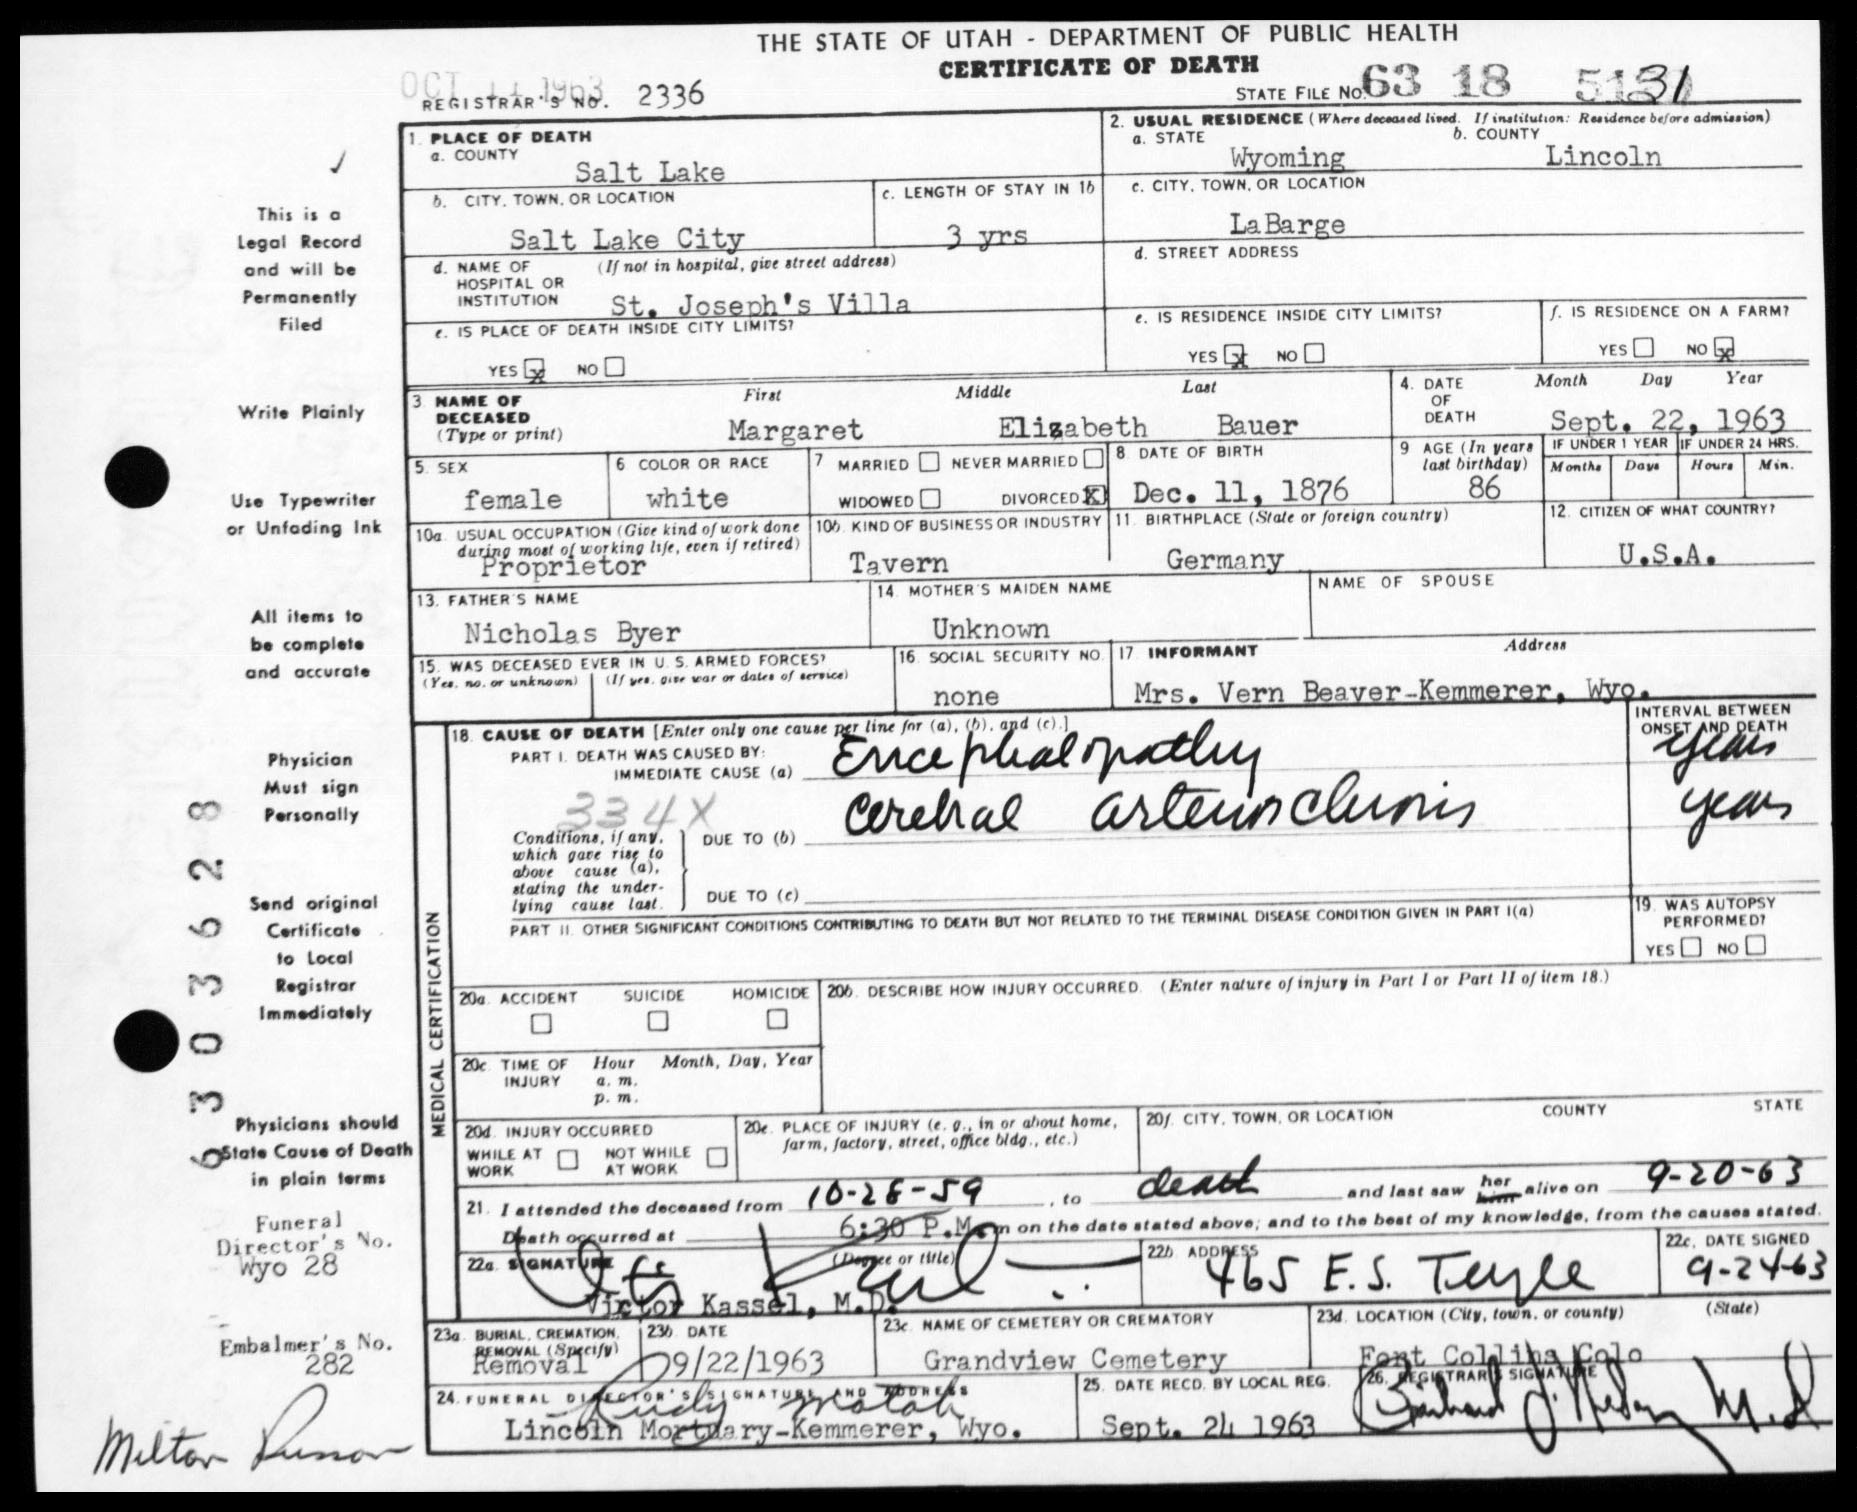 THE STATE OF UTAH - DEPARTMENT OF PUBLIC HEALTH
CERTIFICATE OF DEATH
OCT 11 1963
REGISTRAR'S NO. 2336
STATE FILE NO. 63 18 31
1. PLACE OF DEATH
a. COUNTY
Salt Lake
2. USUAL RESIDENCE (Where deceased lived. If institution: Residence before admission)
a. STATE b. COUNTY
Wyoming Lincoln
b. CITY, TOWN, OR LOCATION
Salt Lake City
c. LENGTH OF STAY IN 1b
3 yrs
c. CITY, TOWN, OR LOCATION
LaBarge
d. NAME OF HOSPITAL OR INSTITUTION (If not in hospital, give street address)
St. Joseph's Villa
d. STREET ADDRESS
e. IS PLACE OF DEATH INSIDE CITY LIMITS?
YES x NO
e. IS RESIDENCE INSIDE CITY LIMITS?
YES x NO
f. IS RESIDENCE ON A FARM?
YES NO x
3 NAME OF DECEASED (Type or print)
First Middle Last
Margaret Elizabeth Bauer
4. DATE OF DEATH
Month Day Year
Sept. 22, 1963
5. SEX
female
6 COLOR OR RACE
white
7 MARRIED NEVER MARRIED
WIDOWED DIVORCED X
8 DATE OF BIRTH
Dec. 11, 1876
9 AGE (In years last birthday)
86
IF UNDER 1 YEAR IF UNDER 24 HRS.
Months Days Hours Min.
10a. USUAL OCCUPATION (Give kind of work done during most of working life, even if retired)
Proprietor
10b. KIND OF BUSINESS OR INDUSTRY
Tavern
11. BIRTHPLACE (State or foreign country)
Germany
12. CITIZEN OF WHAT COUNTRY?
U.S.A.
13. FATHER'S NAME
Nicholas Byer
14. MOTHER'S MAIDEN NAME
Unknown
NAME OF SPOUSE
15. WAS DECEASED EVER IN U. S. ARMED FORCES?
(Yes, no, or unknown) (If yes, give war or dates of service)
16. SOCIAL SECURITY NO.
none
17. INFORMANT Address
Mrs. Vern Beaver-Kemmerer, Wyo.
18. CAUSE OF DEATH [Enter only one cause per line for (a), (b), and (c).]
PART I. DEATH WAS CAUSED BY:
IMMEDIATE CAUSE (a) Encephalopathy
INTERVAL BETWEEN ONSET AND DEATH
years
334X
Conditions, if any, which gave rise to above cause (a), stating the underlying cause last.
DUE TO (b) Cerebral arteriosclerosis
years
DUE TO (c)
PART II. OTHER SIGNIFICANT CONDITIONS CONTRIBUTING TO DEATH BUT NOT RELATED TO THE TERMINAL DISEASE CONDITION GIVEN IN PART I(a)
19. WAS AUTOPSY PERFORMED?
YES NO
MEDICAL CERTIFICATION
20a. ACCIDENT SUICIDE HOMICIDE
20b. DESCRIBE HOW INJURY OCCURRED. (Enter nature of injury in Part I or Part II of item 18.)
20c. TIME OF INJURY Hour Month, Day, Year
a. m.
p. m.
20d. INJURY OCCURRED
WHILE AT WORK NOT WHILE AT WORK
20e. PLACE OF INJURY (e. g., in or about home, farm, factory, street, office bldg., etc.)
20f. CITY, TOWN, OR LOCATION COUNTY STATE
21. I attended the deceased from 10-28-59, to death and last saw her him alive on 9-20-63
Death occurred at 6:30 P.M. m on the date stated above; and to the best of my knowledge, from the causes stated.
22a. SIGNATURE (Degree or title)
Victor Kassel, M.D.
22b. ADDRESS
465 E. S. Temple
22c. DATE SIGNED
9-24-63
23a. BURIAL, CREMATION, REMOVAL (Specify)
Removal
23b. DATE
9/22/1963
23c. NAME OF CEMETERY OR CREMATORY
Grandview Cemetery
23d. LOCATION (City, town, or county) (State)
Fort Collins Colo
24. FUNERAL DIRECTOR'S SIGNATURE AND ADDRESS
Rudy Motah
Lincoln Mortuary-Kemmerer, Wyo.
25. DATE RECD. BY LOCAL REG.
Sept. 24 1963
26. REGISTRAR'S SIGNATURE
M.D
This is a
Legal Record
and will be
Permanently
Filed
Write Plainly
Use Typewriter
or Unfading Ink
All items to
be complete
and accurate
Physician
Must sign
Personally
Send original
Certificate
to Local
Registrar
Immediately
Physicians should
State Cause of Death
in plain terms
6303628
Funeral
Director's No.
Wyo 28
Embalmer's No.
282
Milton